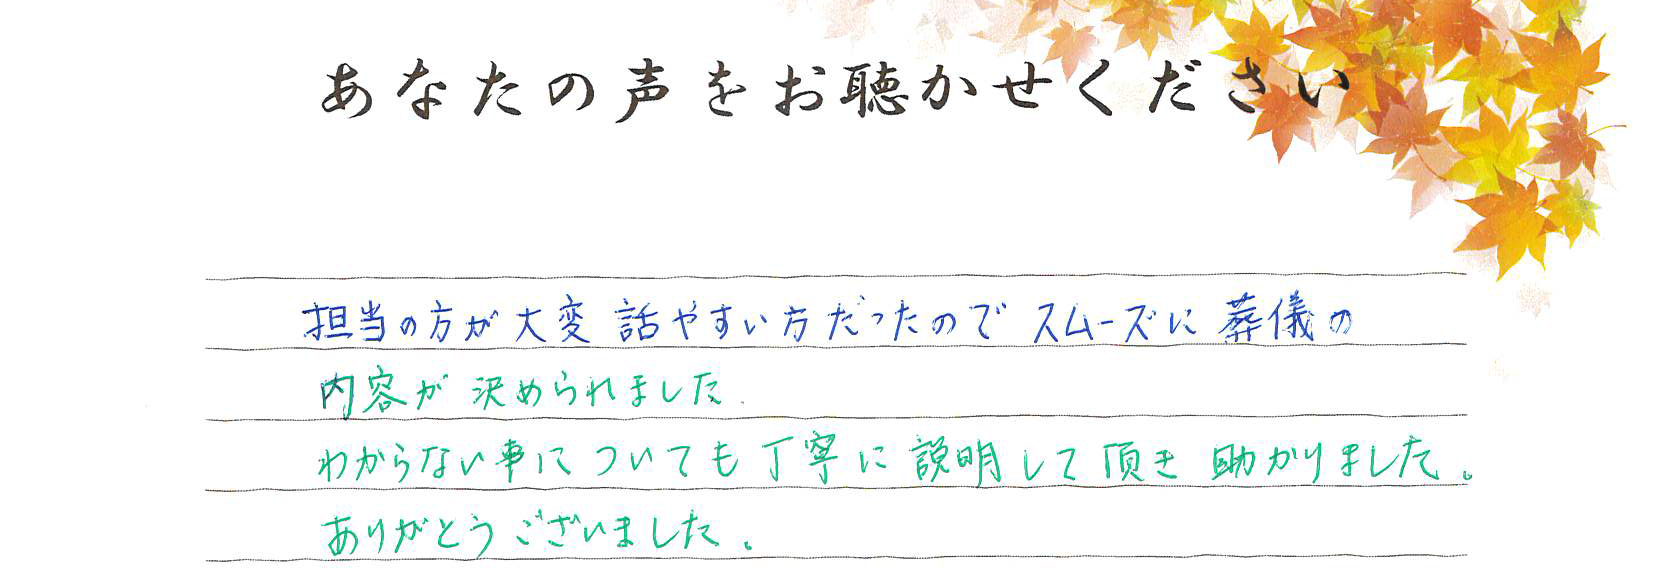 あなたの声をお聴かせください
担当の方が大変話やすい方だったのでスムーズに葬儀の
内容が決められました.
わからない事についても丁寧に説明して頂き助かりました。
ありがとうございました。